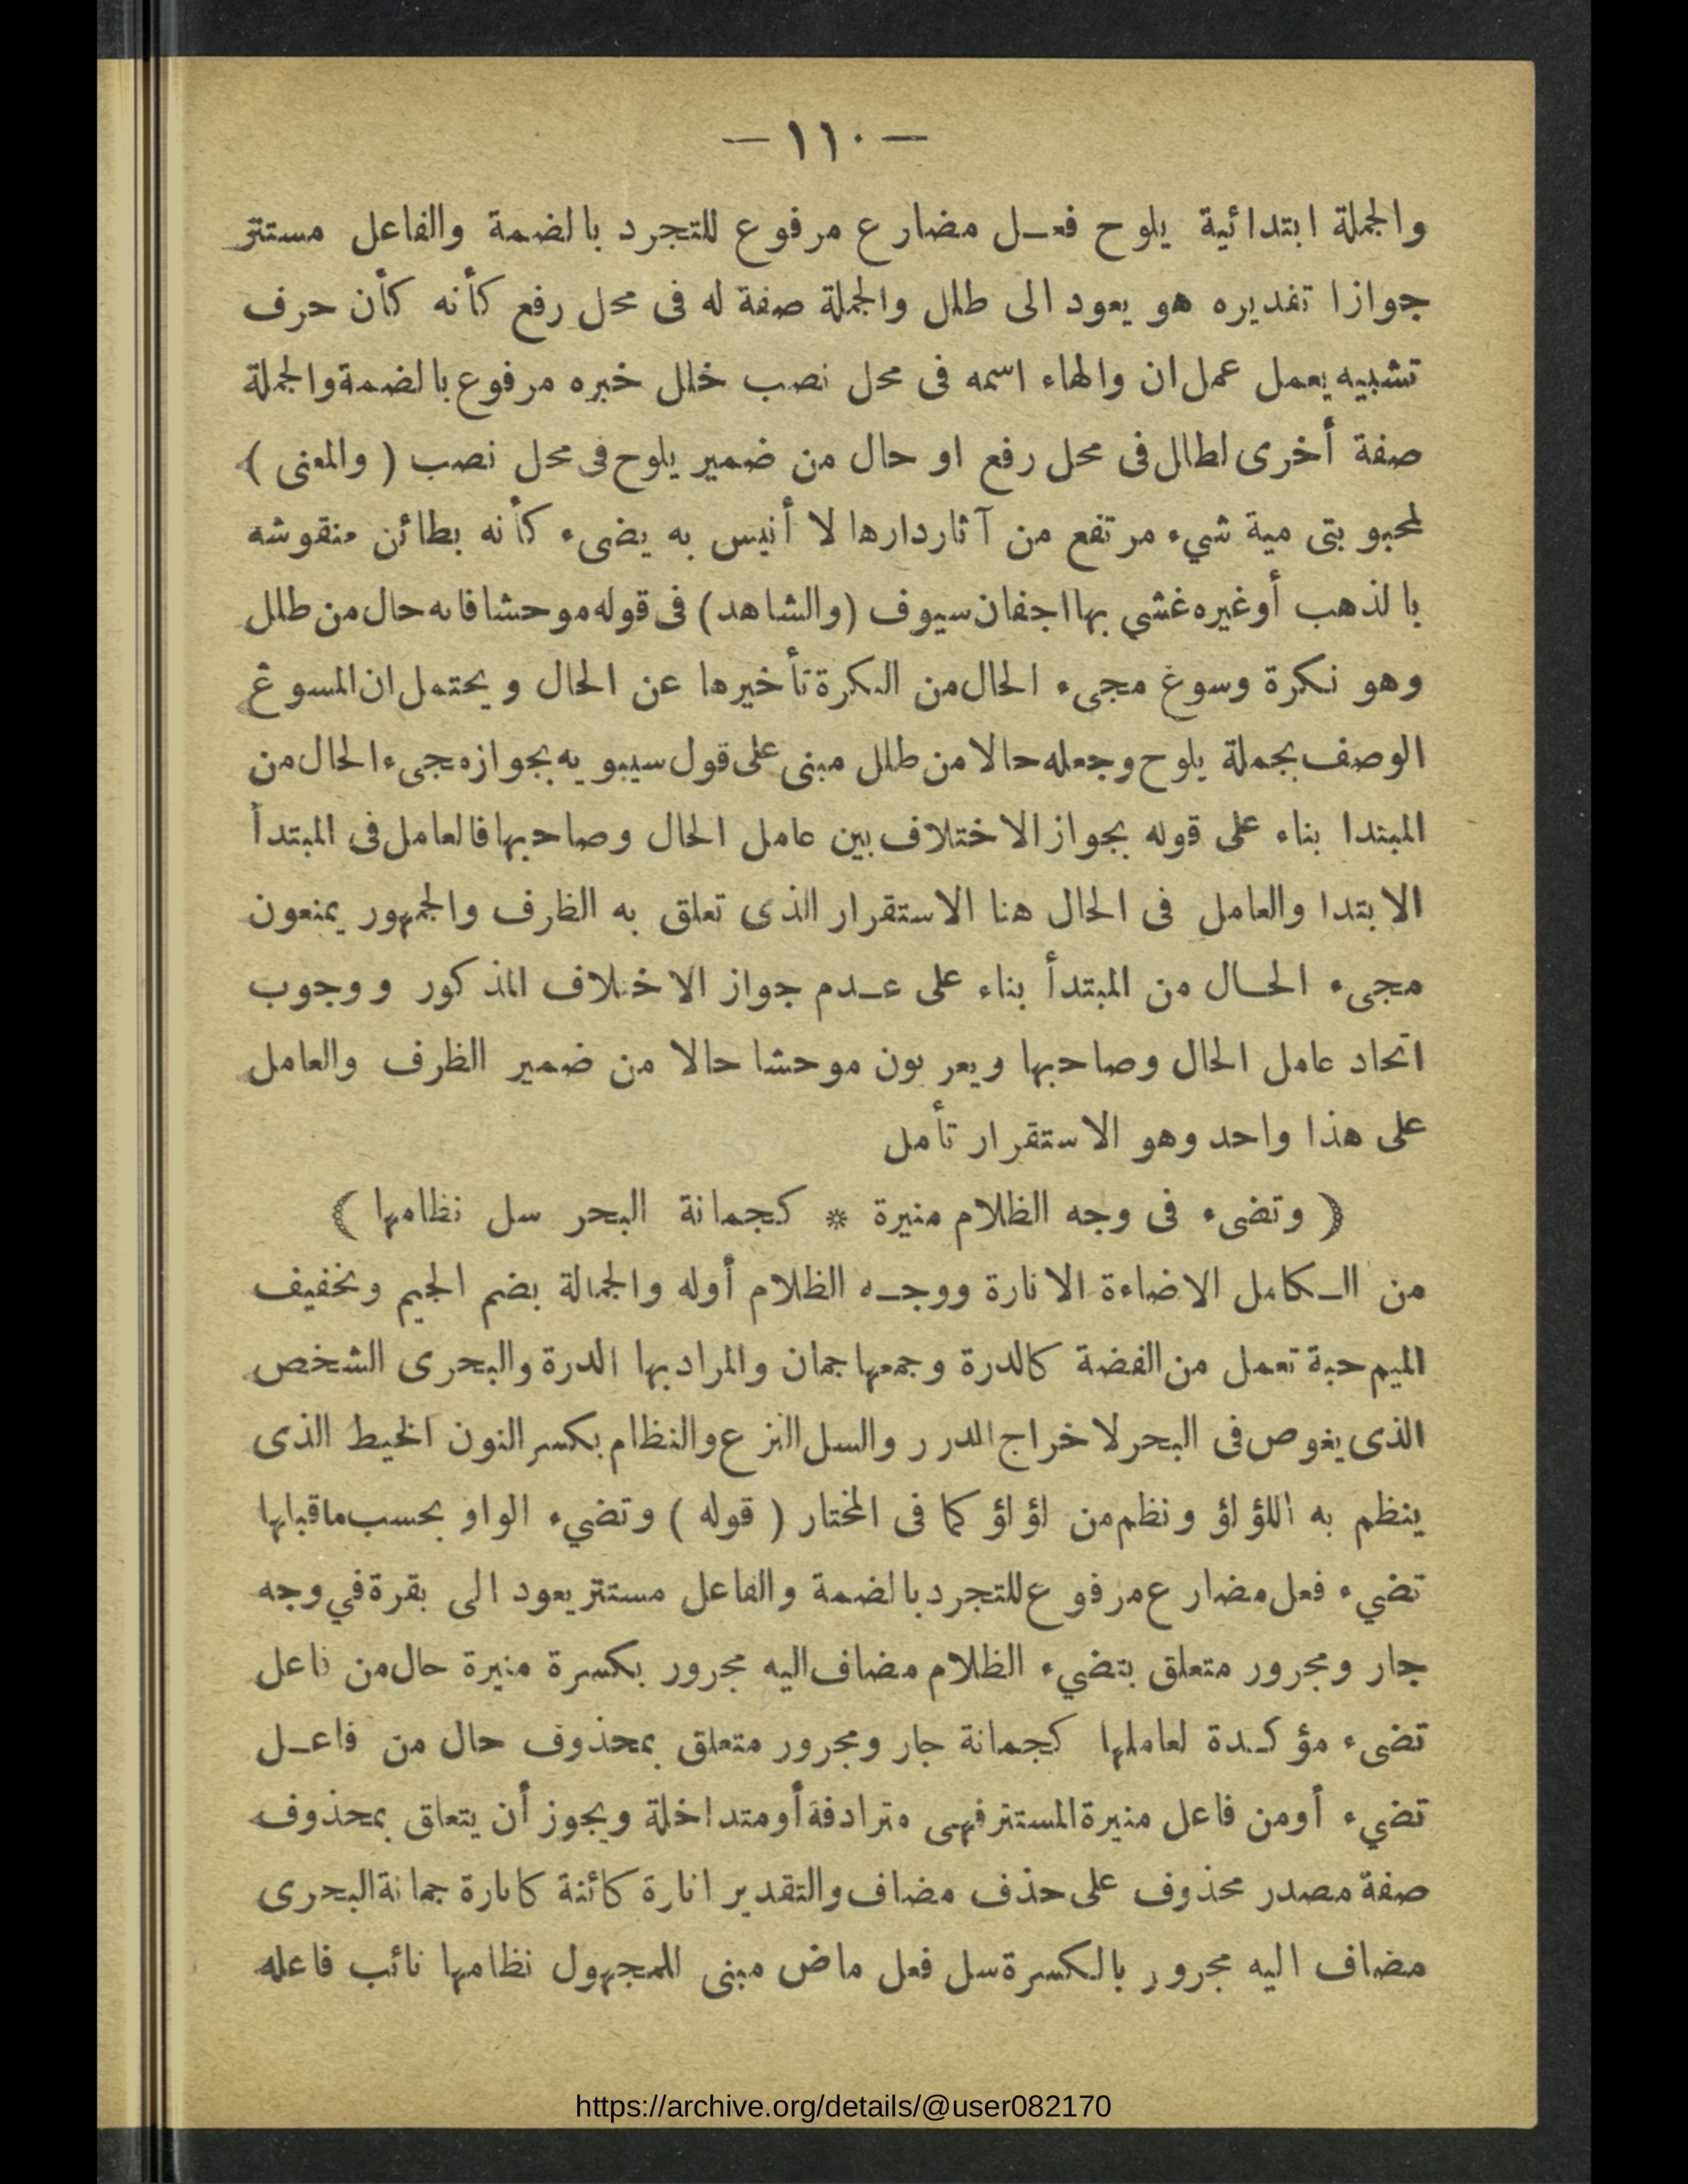 — ١١٠ —
والجملة ابتدائية يلوح فعـل مضارع مرفوع للتجرد بالضمة والفاعل مستتر
جوازا تقديره هو يعود الى طلل والجملة صفة له فى محل رفع كأنه كأن حرف
تشبيه يعمل عمل ان والهاء اسمه فى محل نصب خلل خبره مرفوع بالضمة والجملة
صفة أخرى لطلل فى محل رفع او حال من ضمير يلوح فى محل نصب ( والمعنى )
لمحبوبتى مية شيء مرتفع من آثار دارها لا أنيس به يضىء كأنه بطائن منقوشه
بالذهب أو غيره غشي بها اجفان سيوف (والشاهد) فى قوله موحشا فانه حال من طلل
وهو نكرة وسوغ مجىء الحال من النكرة تأخيرها عن الحال ويحتمل ان المسوغ
الوصف بجملة يلوح وجعله حالا من طلل مبنى على قول سيبويه بجواز مجىء الحال من
المبتدا بناء على قوله بجواز الاختلاف بين عامل الحال وصاحبها فالعامل فى المبتدأ
الابتدا والعامل فى الحال هنا الاستقرار الذى تعلق به الظرف والجمهور يمنعون
مجىء الحـال من المبتدأ بناء على عـدم جواز الاختلاف المذكور ووجوب
اتحاد عامل الحال وصاحبها ويعربون موحشا حالا من ضمير الظرف والعامل
على هذا واحد وهو الاستقرار تأمل
( وتضىء فى وجه الظلام منيرة * كجمانة البحر سل نظامها )
من الـكامل الاضاءة الانارة ووجـه الظلام أوله والجمالة بضم الجيم وتخفيف
الميم حبة تعمل من الفضة كالدرة وجمعها جمان والمراد بها الدرة والبحرى الشخص
الذى يغوص فى البحر لاخراج الدرر والسل النزع والنظام بكسر النون الخيط الذى
ينظم به اللؤلؤ ونظم من لؤلؤ كما فى المختار ( قوله ) وتضيء الواو بحسب ماقبلها
تضيء فعل مضارع مرفوع للتجرد بالضمة والفاعل مستتر يعود الى بقرة في وجه
جار ومجرور متعلق بتضيء الظلام مضاف اليه مجرور بكسرة منيرة حال من فاعل
تضىء مؤكـدة لعاملها كجمانة جار ومجرور متعلق بمحذوف حال من فاعـل
تضيء أو من فاعل منيرة المستتر فهى مترادفة أو متداخلة ويجوز أن يتعلق بمحذوف
صفة مصدر محذوف على حذف مضاف والتقدير انارة كائنة كانارة جمانة البحرى
مضاف اليه مجرور بالكسرة سل فعل ماض مبنى للمجهول نظامها نائب فاعله
https://archive.org/details/@user082170